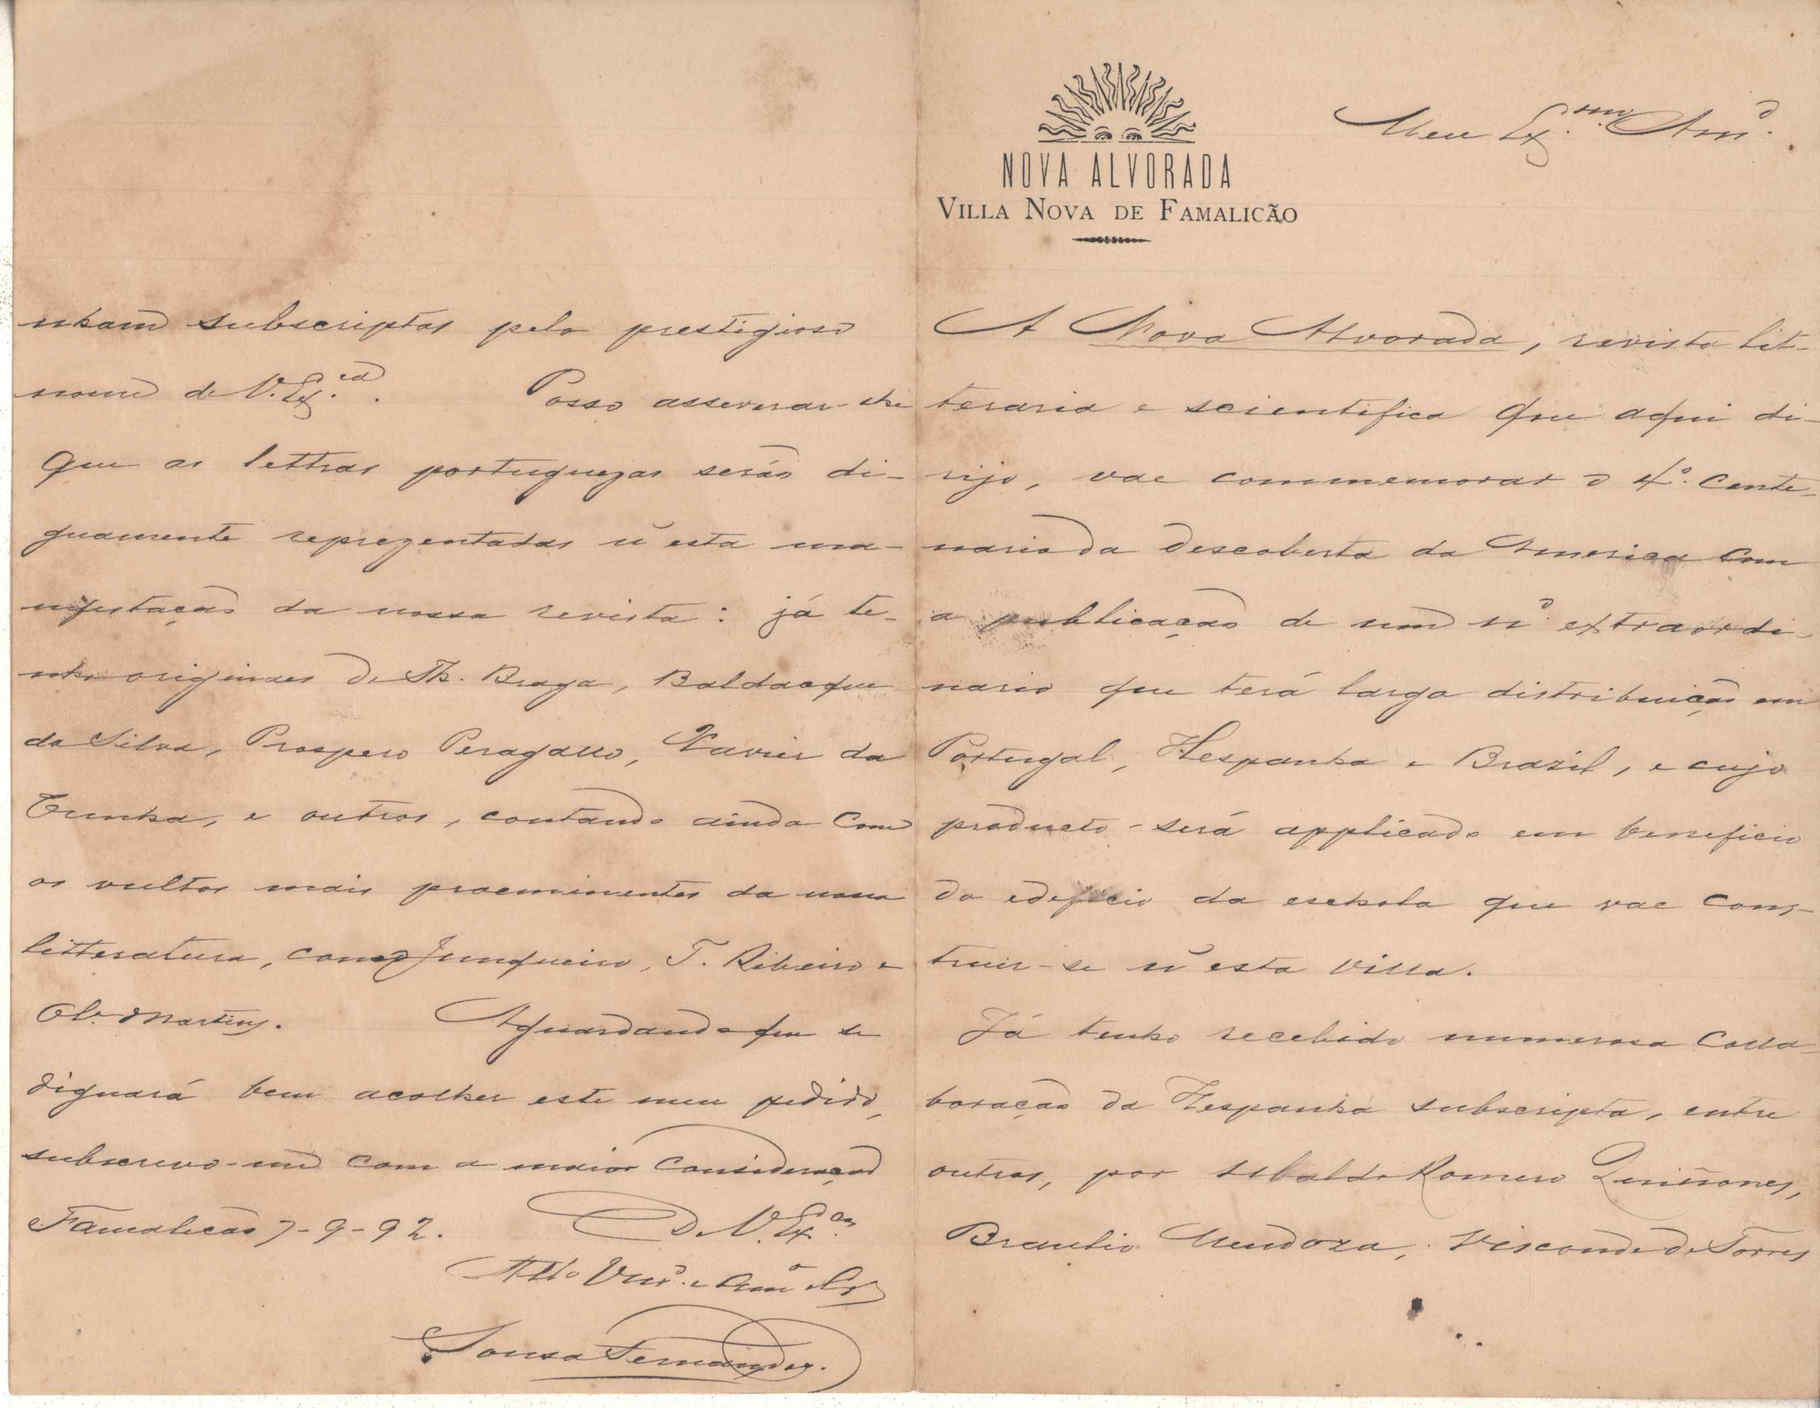 NOVA ALVORADA
VILLA NOVA DE FAMALICÃO
Meu Ex.mo Amo.
A Nova Alvorada, revista lit-
teraria e scientifica que aqui di-
rijo, vae commemorar o 4º. cente-
nario da descoberta da America com
a publicação de um nº extraordi-
nario que terá larga distribuição em
Portugal, Hespanha e Brazil, e cujo
producto será applicado em beneficio
do edeficio da eschola que vae cons-
truir-se n'esta Villa.
Já tenho recebido numerosa colla-
boração da Hespanha subscripta, entre
outros, por Ubaldo Romero Quiñones,
Braulio Mendoza, Visconde de Torres
nham subscriptas pelo prestigioso
nome de V. Ex.cia. Posso asseverar-lhe
que as lettras portuguezas serão di-
gnamente reprezentadas n'esta ma-
nifestação da nossa revista: já te-
nho originaes de Th. Braga, Baldaque
da Silva, Prospero Peragallo, Xavier da
Cunha, e outros, contando ainda com
os vultos mais proeminentes da nossa
litteratura, como Junqueiro, T. Ribeiro e
Ol. Martins. Aguardando que se
dignará bem acolher este meu pedido,
subscrevo-me com a maior consideração
Famalicão 7-9-92. De V. Ex.cia
Atto Venr. e Amo
Sousa Fernandes.